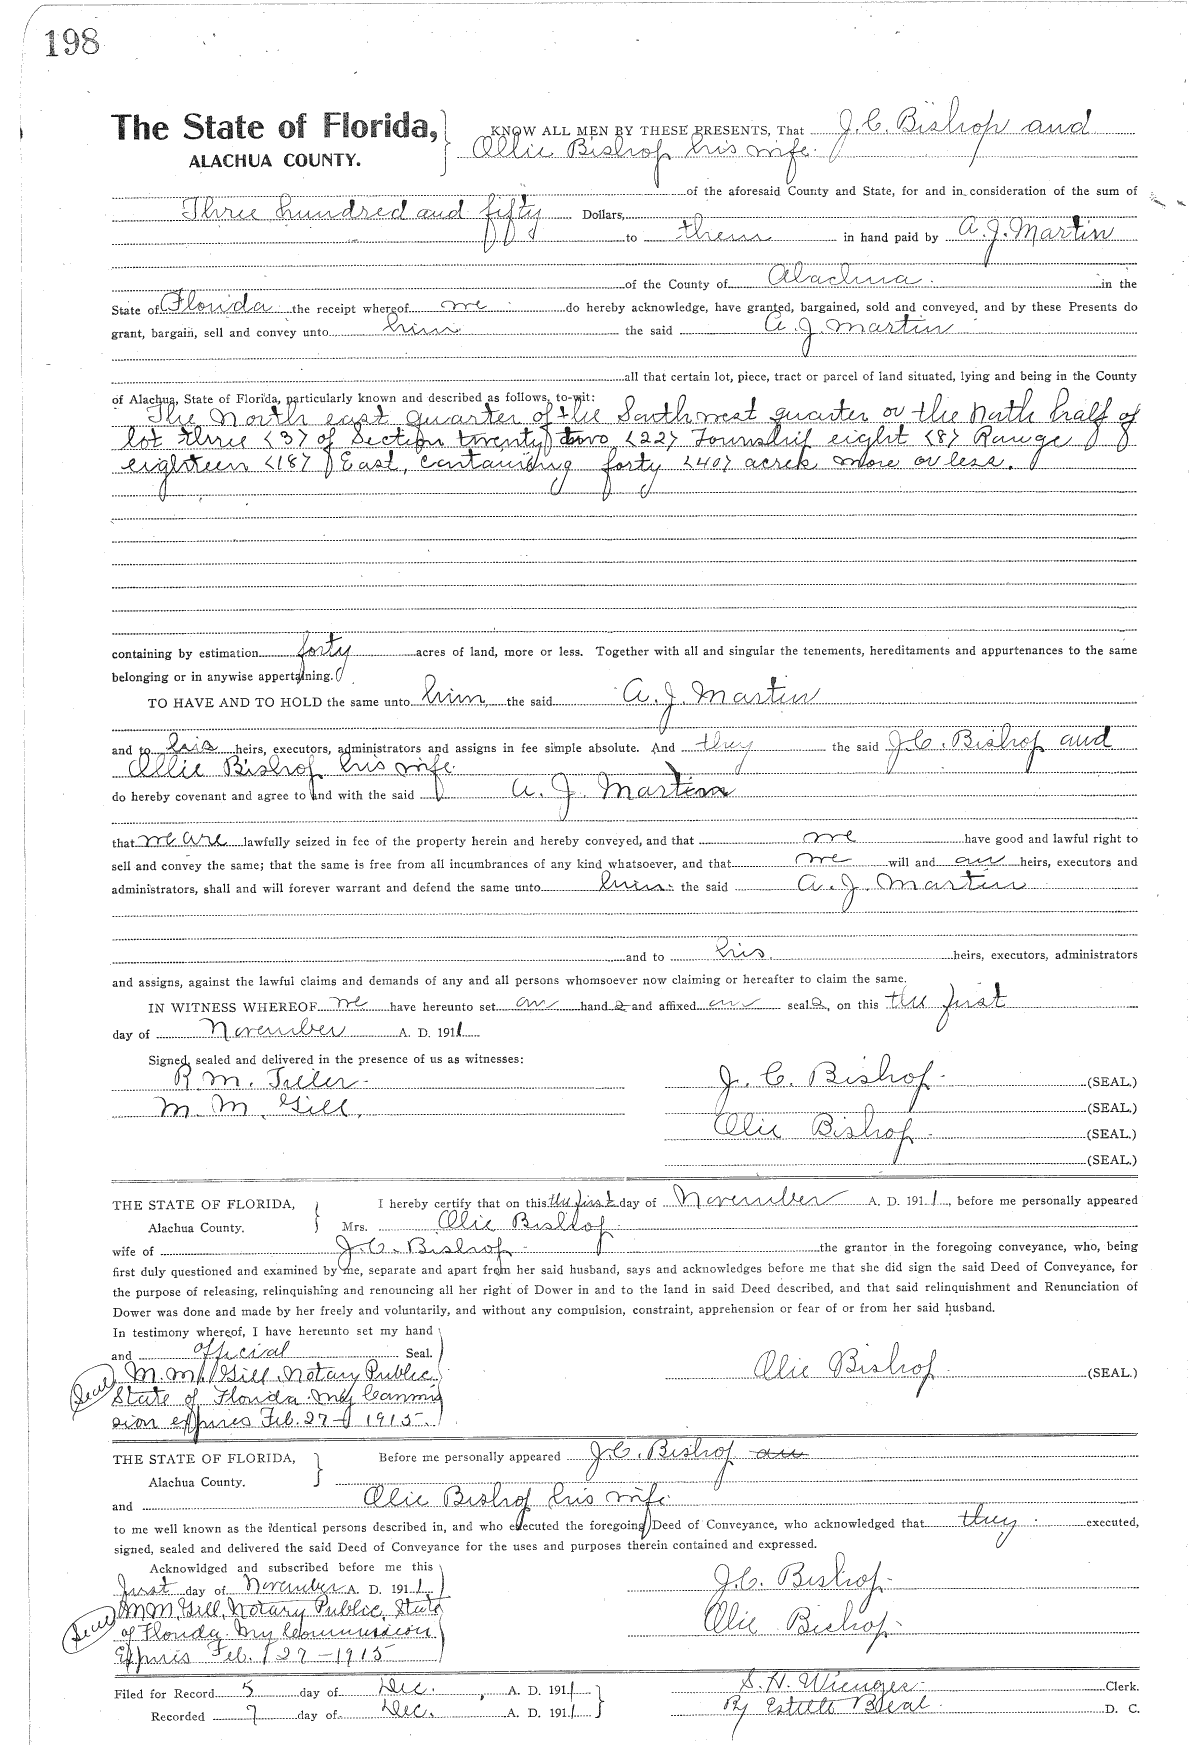 198
The State of Florida, KNOW ALL MEN BY THESE PRESENTS, That J. C. Bishop and
ALACHUA COUNTY. Ollie Bishop his wife.
of the aforesaid County and State, for and in consideration of the sum of
Three hundred and fifty Dollars,
to them in hand paid by A. J. Martin
of the County of Alachua. in the
State of Florida the receipt whereof we do hereby acknowledge, have granted, bargained, sold and conveyed, and by these Presents do
grant, bargain, sell and convey unto him the said A. J. Martin
all that certain lot, piece, tract or parcel of land situated, lying and being in the County
of Alachua, State of Florida, particularly known and described as follows, to-wit:
The North east quarter of the South west quarter or the North half of
lot three (3) of Section twenty two (22) Township eight (8) Range
eighteen (18) East, containing forty (40) acres more or less.
containing by estimation forty acres of land, more or less. Together with all and singular the tenements, hereditaments and appurtenances to the same
belonging or in anywise appertaining.
TO HAVE AND TO HOLD the same unto him, the said A. J. Martin
and to his heirs, executors, administrators and assigns in fee simple absolute. And they the said J. C. Bishop and
Ollie Bishop his wife.
do hereby covenant and agree to and with the said A. J. Martin
that we are lawfully seized in fee of the property herein and hereby conveyed, and that we have good and lawful right to
sell and convey the same; that the same is free from all incumbrances of any kind whatsoever, and that we will and our heirs, executors and
administrators, shall and will forever warrant and defend the same unto him the said A. J. Martin
and to his heirs, executors, administrators
and assigns, against the lawful claims and demands of any and all persons whomsoever now claiming or hereafter to claim the same.
IN WITNESS WHEREOF we have hereunto set our hand s and affixed our seal s, on this the first
day of November A. D. 1911
Signed, sealed and delivered in the presence of us as witnesses:
R. M. J. C. Bishop (SEAL.)
M. M. Gill. (SEAL.)
Olie Bishop (SEAL.)
(SEAL.)
THE STATE OF FLORIDA, I hereby certify that on this the first day of November A. D. 1911, before me personally appeared
Alachua County. Mrs. Olie Bishop
wife of J. C. Bishop the grantor in the foregoing conveyance, who, being
first duly questioned and examined by me, separate and apart from her said husband, says and acknowledges before me that she did sign the said Deed of Conveyance, for
the purpose of releasing, relinquishing and renouncing all her right of Dower in and to the land in said Deed described, and that said relinquishment and Renunciation of
Dower was done and made by her freely and voluntarily, and without any compulsion, constraint, apprehension or fear of or from her said husband.
In testimony whereof, I have hereunto set my hand
and official Seal.
M. M. Gill, Notary Public Olie Bishop (SEAL.)
Seal State of Florida. My Commis
sion expires Feb. 27 - 1915.
THE STATE OF FLORIDA, Before me personally appeared J. C. Bishop an
Alachua County.
and Olie Bishop his wife.
to me well known as the identical persons described in, and who executed the foregoing Deed of Conveyance, who acknowledged that they executed,
signed, sealed and delivered the said Deed of Conveyance for the uses and purposes therein contained and expressed.
Acknowldged and subscribed before me this
first day of November A. D. 1911 J. C. Bishop
M. M. Gill, Notary Public, State Olie Bishop
Seal of Florida. My Commission
Expires Feb. 27 - 1915
Filed for Record 5 day of Dec. A. D. 1911 S. H. Wienges Clerk.
Recorded 7 day of Dec. A. D. 1911 By Beal D. C.